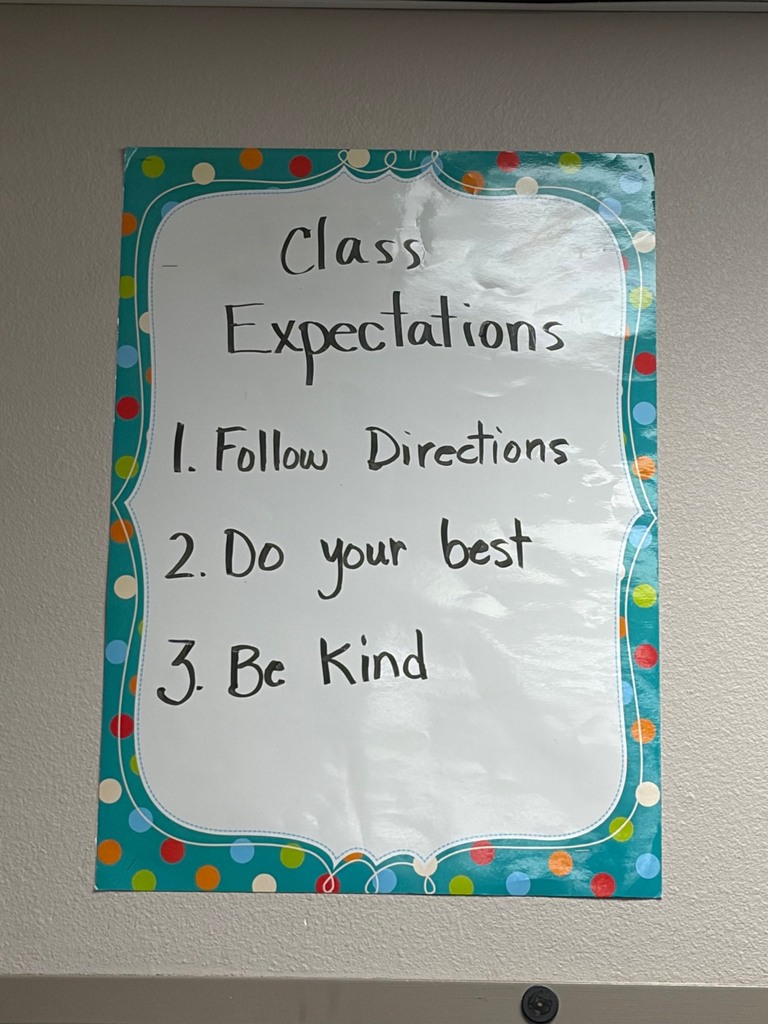 Class
Expectations
1. Follow Directions
2. Do your best
3. Be Kind